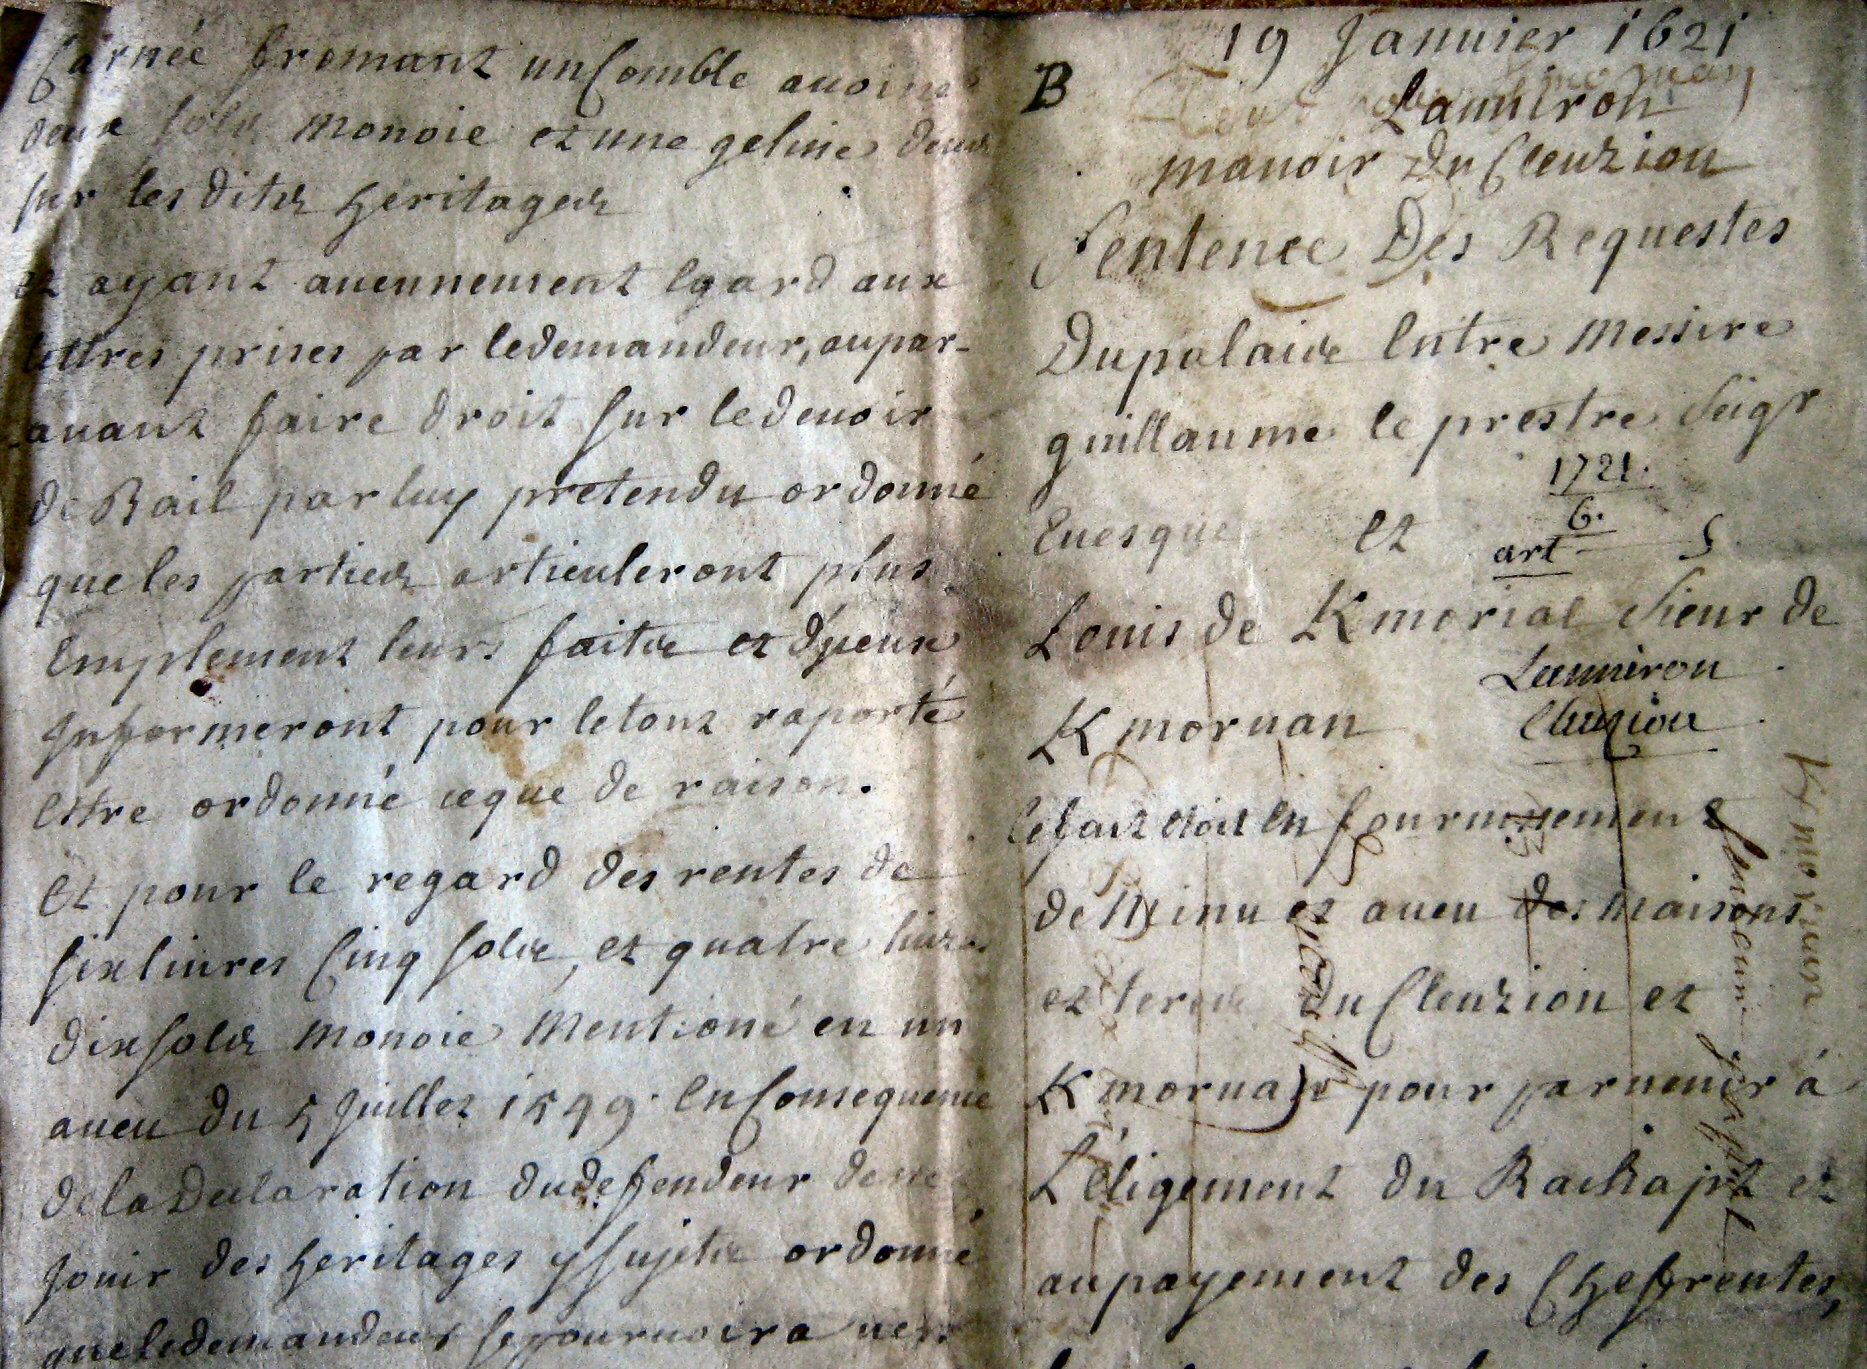 Carnée fromant un Comble auoine
deux solz monoie et une geline deuz
sur les ditz heritages
et ayant aucunnement Egard aux
lettres prises par ledemandeur, aupar-
auant faire droit sur ledeuoir
de Bail par luy pretendu ordonné
que les partiez articuleront plus
Emplement leurs faitz et d'yceux
Informeront pour letout raporté
Estre ordonné ceque de raison.
Et pour le regard des rentes de
six liures Cinq solz, et quatre liures
dix solz monoie Mentioné en un
aueu du 5 Juillet 1549. En Consequence
dela Declaration dudefendeur de ne
Jouir des heritages y sujetz ordonné
que ledemandeur se pouruoira vers
19 Januier 1621
B
Lanniron
manoir Du Cleuziou
Sentence Des Requestes
Dupalaiz Entre Messire
guillaume le prestre Seigr
1721.
6.
Euesque Et art S
Louis de Kmorial Sieur de
Lanniron
Kmoruan Cleuziou
lefait Etoit En fournissement
de Minu et aueu des Maisons
et terres Du Cleuziou et
Kmoruan pour paruenir á
L'éligement du Rachapt et
aupayement des Chefrentes,
Kmoruan